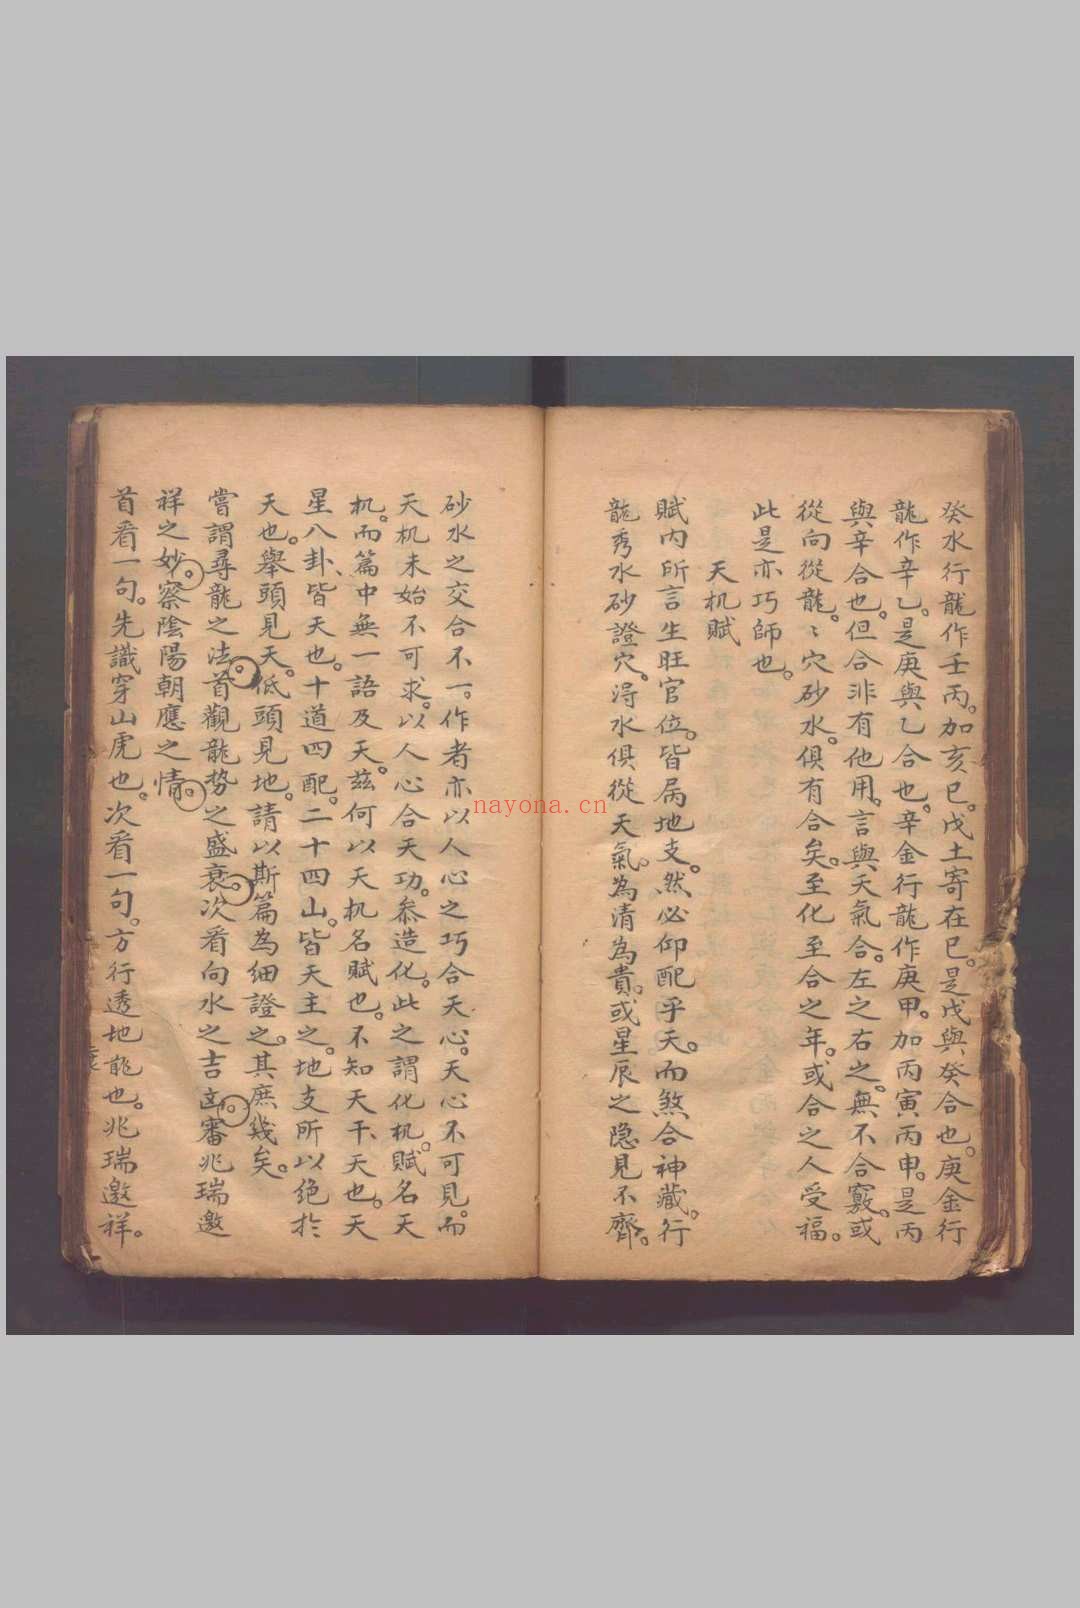 癸水行龍作壬丙。加亥巳。戊土寄在巳。是戊與癸合也。庚金行
龍作辛乙。是庚與乙合也。辛金行龍作庚甲。加丙寅丙申。是丙
與辛合也。但合非有他用。言與天氣合。左之右之。無不合竅。或
從向從龍。〻穴砂水。俱有合矣。至化至合之年。或合之人受福。
此是亦巧師也。
天机賦
賦内所言生旺官位。皆属地支。然必仰配乎天。而煞合神藏。行
龍秀水砂證穴。淂水俱從天氣。為清為貴。或星辰之隐見不齊。
砂水之交合不一。作者亦以人心之巧合天心。天心不可見。而
天机未始不可求。以人心合天功。叅造化。此之謂化机。賦名天
机。而篇中無一語及天。茲何以天机名賦也。不知天干天也。天
星八卦、皆天也。十道四配。二十四山。皆天主之。地支所以绝扵
天也。舉頭見天。低頭見地。請以斯篇為细證之。其庶幾矣。
嘗謂尋龍之法。首觀龍势之盛衰。次看向水之吉凶。審兆瑞邀
祥之妙。察陰陽朝應之情。
首看一句。先識穿山虎也。次看一句。方行透地龍也。兆瑞邀祥。
nayona.cn